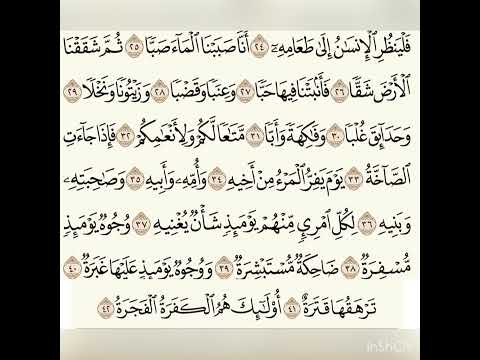 فَلْيَنظُرِ ٱلْإِنسَٰنُ إِلَىٰ طَعَامِهِۦٓ ٢٤ أَنَّا صَبَبْنَا ٱلْمَآءَ صَبًّا ٢٥ ثُمَّ شَقَقْنَا
ٱلْأَرْضَ شَقًّا ٢٦ فَأَنۢبَتْنَا فِيهَا حَبًّا ٢٧ وَعِنَبًا وَقَضْبًا ٢٨ وَزَيْتُونًا وَنَخْلًا ٢٩
وَحَدَآئِقَ غُلْبًا ٣٠ وَفَٰكِهَةً وَأَبًّا ٣١ مَّتَٰعًا لَّكُمْ وَلِأَنْعَٰمِكُمْ ٣٢ فَإِذَا جَآءَتِ
ٱلصَّآخَّةُ ٣٣ يَوْمَ يَفِرُّ ٱلْمَرْءُ مِنْ أَخِيهِ ٣٤ وَأُمِّهِۦ وَأَبِيهِ ٣٥ وَصَٰحِبَتِهِۦ
وَبَنِيهِ ٣٦ لِكُلِّ ٱمْرِئٍ مِّنْهُمْ يَوْمَئِذٍ شَأْنٌ يُغْنِيهِ ٣٧ وُجُوهٌ يَوْمَئِذٍ
مُّسْفِرَةٌ ٣٨ ضَاحِكَةٌ مُّسْتَبْشِرَةٌ ٣٩ وَوُجُوهٌ يَوْمَئِذٍ عَلَيْهَا غَبَرَةٌ ٤٠
تَرْهَقُهَا قَتَرَةٌ ٤١ أُو۟لَٰٓئِكَ هُمُ ٱلْكَفَرَةُ ٱلْفَجَرَةُ ٤٢